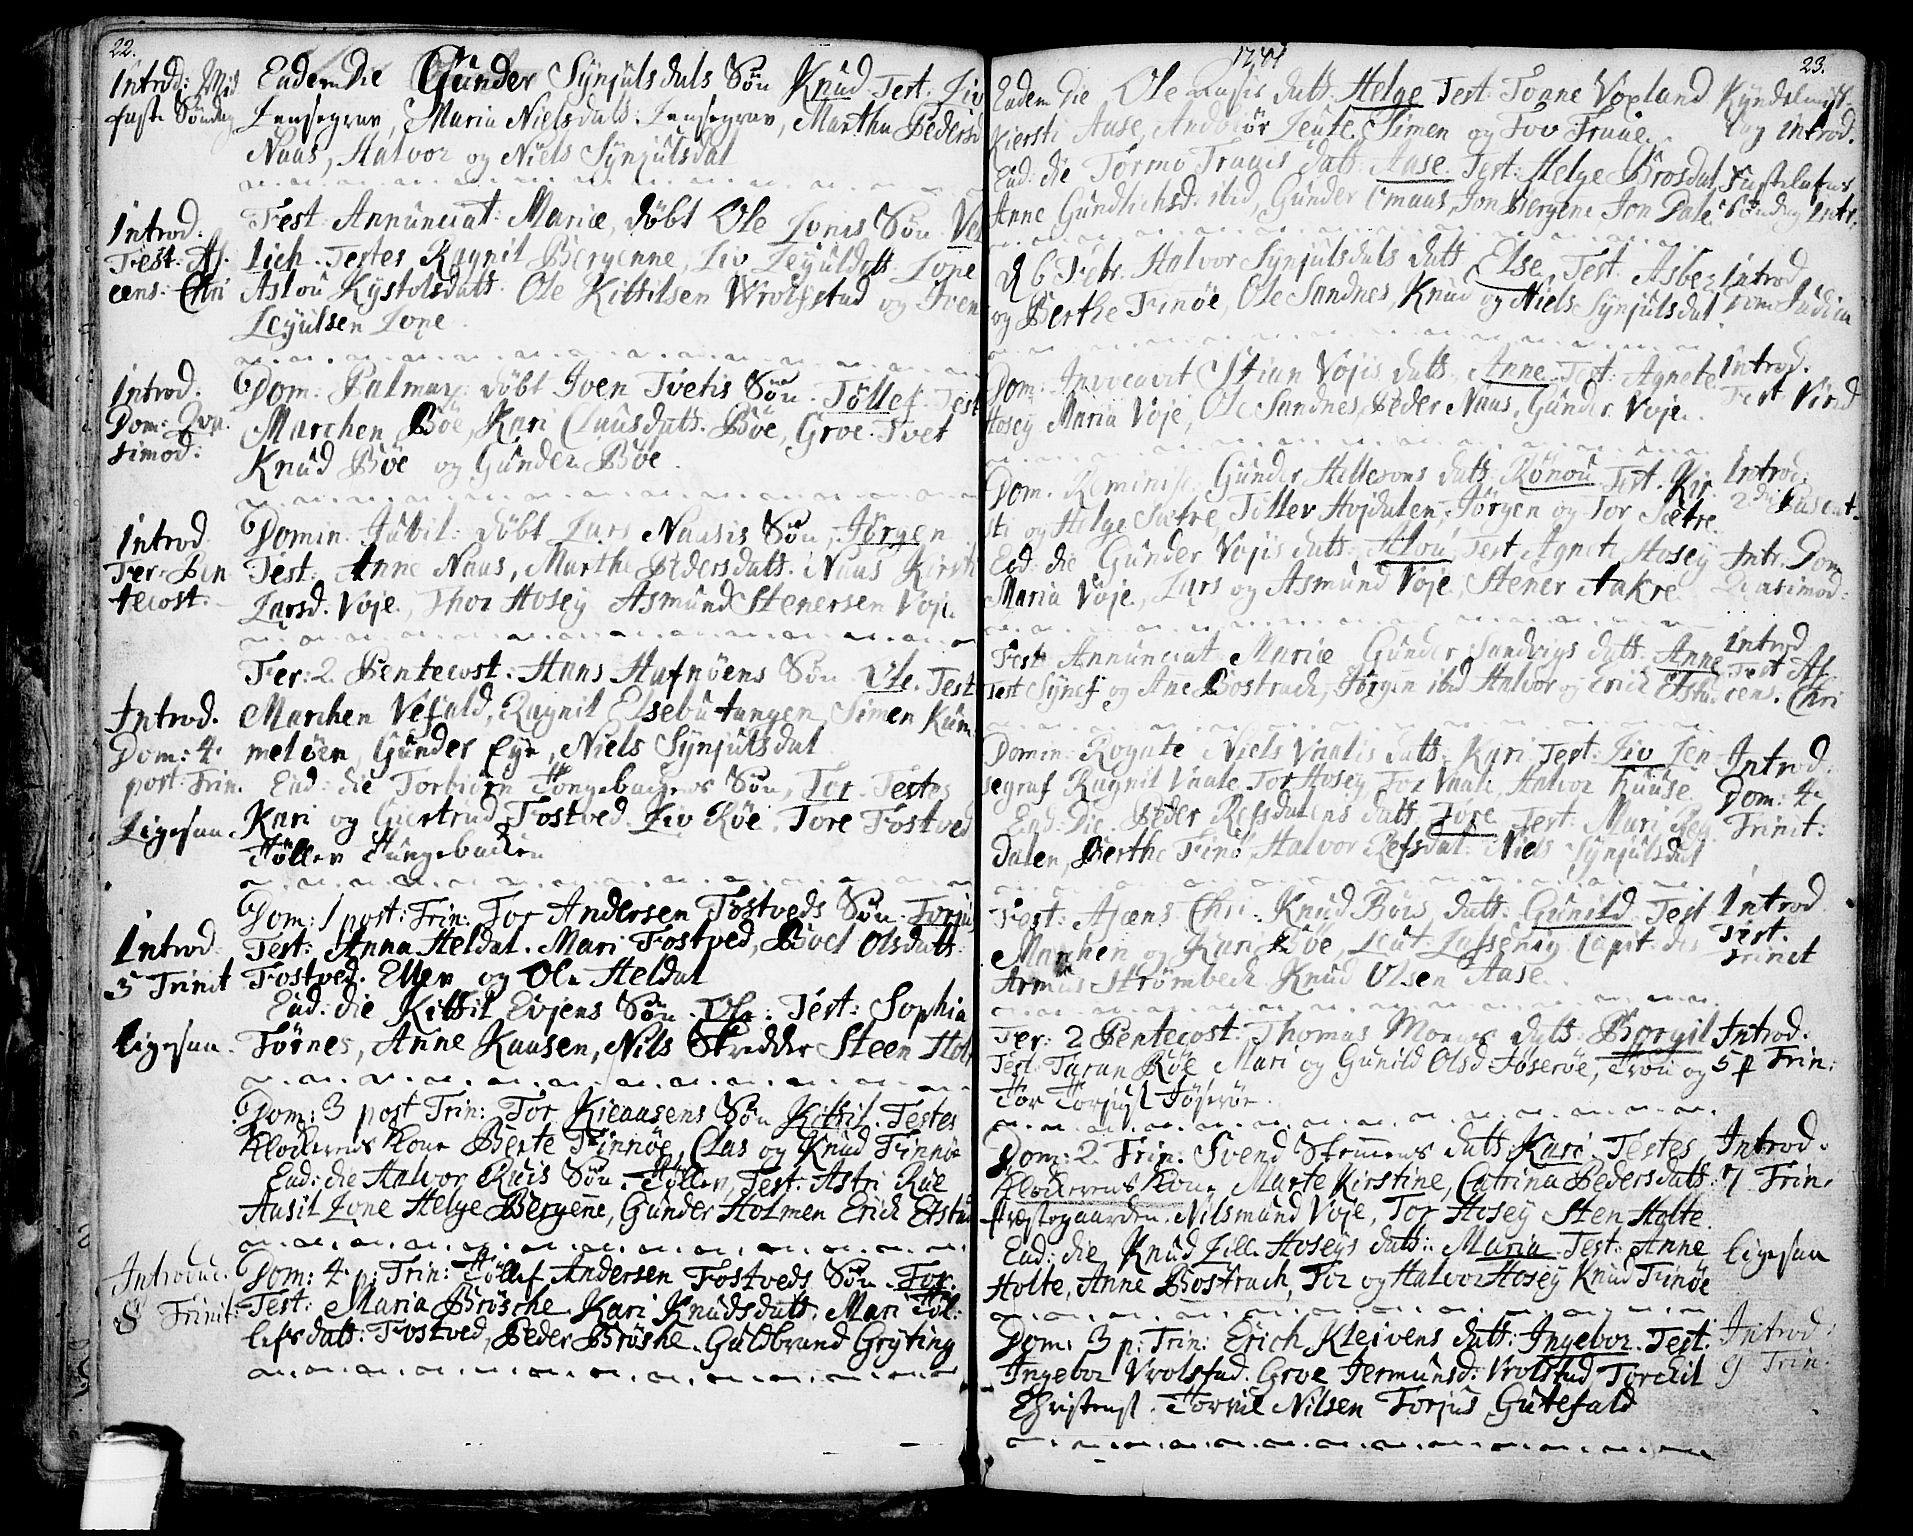 22.
Introd: Mid
faste Søndag
Eadem Die Gunder Synjulsdals Søn Knud Test. Liv
Lensegrav, Maria Nielsdatt: Lensegrav, Martha Pedersd
Naas, Halvor og Niels Synjulsdal
Introd.
Fest: As
cens: Chri
Fest: Annunciat: Mariæ, døbt Ole Lonis Søn Vel
lich. Testes Ragnil Bergenne, Liv Leyuldatt. Lone
Aslou Kystolsdatt: Ole Kittilsen Wrolfstad og Iven
Leyulsen Lone.
Introd:
Dom: Qva
simod:
Dom: Palmar: døbt Iven Tvetis Søn Tøllef. Test
Marchen Böe, Kari Clausdatt. Böe, Groe Tvet
Knud Böe og Gunder Böe.
Introd
Fer: Pen
tecost.
Domin: Jubil: døbt Lars Naasis Søn, Jørgen
Test: Anne Naas, Marthe Pedersdatt. Naas Kirsti
Larsd. Voje, Thor Hosey Asmund Stenersen Voje
Fer: 2. Pentecost: Hans Hafnöens Søn Ole. Test
Introd.
Dom: 4.
post: Trin.
Marchen Vefald, Ragnil Elsebutangen Simen Kum
melöen, Gunder Eye, Niels Synjulsdal
Ead: die Torbiörn Tongebachens Søn, Tor Testes
Ligesaa.
Kari og Giertrud Fostved Liv Röe. Tore Fostved
Töllev Tungebacken
Dom: 1 post: Trin: Tor Andersen Fostveds Søn Torju
Introd
5 Trinit
Test: Anna Heldal. Mari Fostved, Boel Olsdatt:
Fostved. Ellev og Ole Heldal
Ead: die Kittil Evjens Søn. Ole. Test: Sophia
Ligesaa.
Törnes, Anne Kaasen, Nils Skredder Steen Holt
Dom: 3 post Trin: Tor Kieaasens Søn Kittil. Testes
Klockerens Kone Berte Finnöe, Clas og Knud Finnöe
Ead: die Halvor Rueis Søn. Töllev, Test: Astri Rue
Aasil Lone Helge Bergenne, Gunder Holmen Erich Elstad
Introduc.
8 Trinit:
Dom: 4. p: Trin: Töllef Andersen Fostveds Søn. Tor.
Test: Maria Brösche. Kari Knudsdatt, Mari Töl:
lefsdatt: Fostved, Peder Bröshe. Guldbrand Gryting
1741
23.
Eadem Die Ole datt. Helge Test: Tonne Voxland
Kiersti Aase, Andbiör Leute Simen og Tov Traae.
Kyndelmiss
dag Introd.
Ead: die Tormo Traaeis datt: Aase Test: Helge Brosdal
Anne Gundlichsd. ibid, Gunder Omaas, Jon Bergene Jon Dale
Fastelafens
Søndag Intr.
D 6 Febr. Halvor Synjulsdals datt. Else, Test. Asber
og Berthe Finöe, Ole Sandnes, Knud og Niels Synjulsdal
Introd
Dom: Judica
Dom: Invocavit Stian Vojis datt. Anne Test: Agnete
Hosey Maria Voje, Ole Sandnes, Peder Naas, Gunder Voje.
Introd.
Fest Visid
Dom. Reminisc. Gunder Hellesons datt. Rönou Test. Kir
sti og Helge Sætre, Tillev Hojdalen, Jörgen og Tor Sætre.
Introd:
2 die Pascat.
Ead: die Gunder Vojis datt: Aslou, Test Agnete Hosey
Maria Voje, Lars og Asmund Voje, Stener Aakre
Intr. Dom
Quasimod:
Fest Annunciat Mariæ Gunder Sandvigs datt. Anne
Test Synef og Ane Bostrach, Jörgen ibid Halvor og Erich Elsta
Introd
Fest As
cens. Chri
Domin: Rogate Niels Vaalis datt. Kari Test: Liv Len
segraf Ragnil Vaale Tor Hosey Tor Vaale, Halvor Kaase
Introd.
Dom: 4.
Trinit:
Ead: Die. Peder Refsdalens datt Töre Test: Mari Refs
dalen, Berthe Finö, Halvor Refsdal. Niels Synjulsdal
Fest: Ascens. Chri: Knud Böis datt: Gunild Test
Marchen og Kari Böe, Leut: Lassenig Capit: des
Armes Strömbech Knud Olsen Aase.
Introd
Fest.
Trinit
Fer: 2 Pentecost: Thomas Moens datt: Borgil
Test Taran Röe Mari og Gunild Olsd Föseröe, Tron og
Tor Torjus Fösseröe.
Introd.
5 p Trin:
Dom: 2. Trin. Svend Stemmens datt Kari. Testes
Klockerens Kone, Marte Kirstine, Catrina Pedersdatt:
Præstegaarden. Nils Asmund Voje, Tor Hosey Sten Holte
Introd.
7 Trin.
Ead: die Knud Lille Hoseys datt: Maria. Test: Anne
Holte, Anne Bostrach, Tor og Halvor Hosey Knud Finöe
Ligesaa
Dom: 3 p: Trin: Erich Kleivens datt: Ingebor. Test:
Ingebor Vrolstad. Groe Jermunsd: Vrolstad Torchil
Christensl. Torvil Nilsen Torjus Gutefald
Introd:
9 Trin.